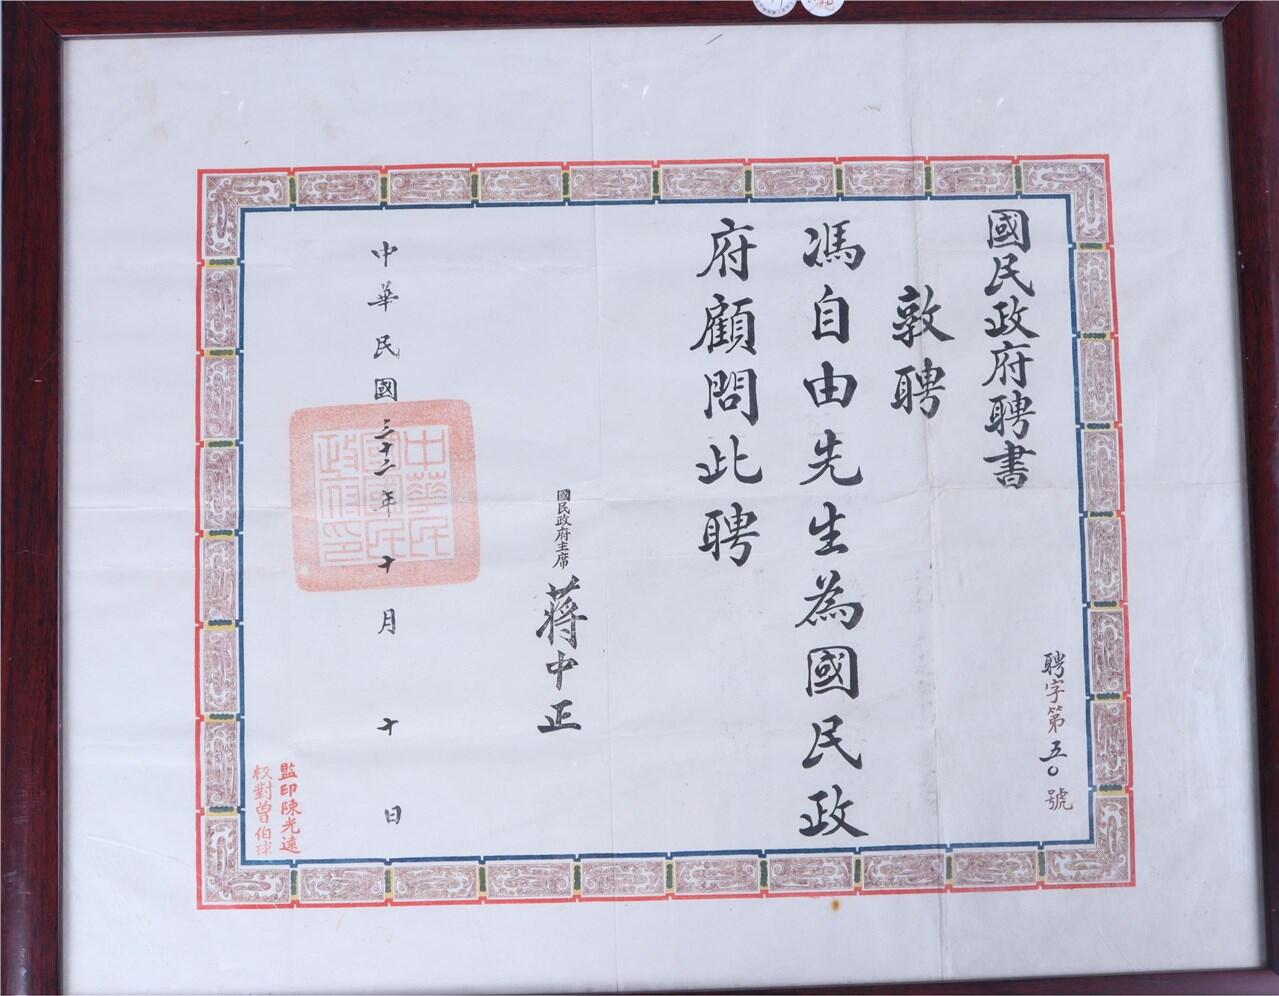 國民政府聘書
聘字第五〇號
敦聘
馮自由先生為國民政
府顧問此聘
國民政府主席 蔣中正
中華民國三十二年十月十日
中華民國國民政府印
監印陳光遠
校對曾伯球